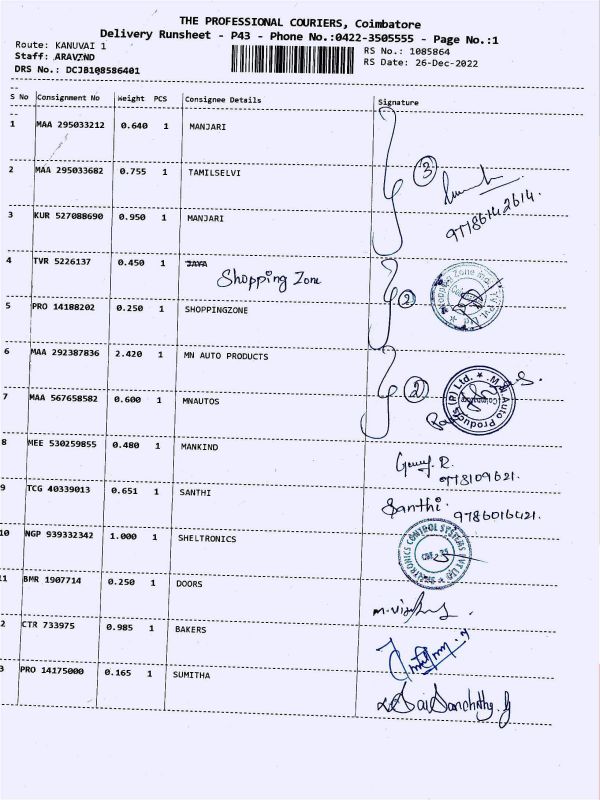 THE PROFESSIONAL COURIERS, Coimbatore
Delivery Runsheet - P43 - Phone No.:0422-3505555 - Page No.:1
Route: KANUVAI 1
RS No.: 1085864
Staff: ARAVIND
RS Date: 26-Dec-2022
DRS No.: DCJB108586401
S No Consignment No Weight PCS Consignee Details Signature
1 MAA 295033212 0.640 1 MANJARI
2 MAA 295033682 0.755 1 TAMILSELVI
3
9786142614.
3 KUR 527088690 0.950 1 MANJARI
4 TVR 5226137 0.450 1 JAYA
Shopping Zone
2
5 PRO 14188202 0.250 1 SHOPPINGZONE
6 MAA 292387836 2.420 1 MN AUTO PRODUCTS
2
M.N. Auto Products (P) Ltd. *
7 MAA 567658582 0.600 1 MNAUTOS
8 MEE 530259855 0.480 1 MANKIND
9 TCG 40339013 0.651 1 SANTHI
Santhi. 9786016421.
10 NGP 939332342 1.000 1 SHELTRONICS
11 BMR 1907714 0.250 1 DOORS
2 CTR 733975 0.985 1 BAKERS
3 PRO 14175000 0.165 1 SUMITHA